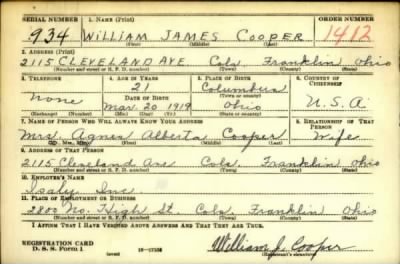 SERIAL NUMBER 1. NAME (Print) ORDER NUMBER
934 WILLIAM JAMES COOPER 1412
(First) (Middle) (Last)
2. ADDRESS (Print)
2115 CLEVELAND AVE Cols. Franklin Ohio
(Number and street or R. F. D. number) (Town) (County) (State)
3. TELEPHONE 4. AGE IN YEARS 5. PLACE OF BIRTH 6. COUNTRY OF CITIZENSHIP
21 Columbus
None DATE OF BIRTH (Town or county)
Mar. 20 1919 Ohio U.S.A.
(Exchange) (Number) (Mo.) (Day) (Yr.) (State or country)
7. NAME OF PERSON WHO WILL ALWAYS KNOW YOUR ADDRESS 8. RELATIONSHIP OF THAT PERSON
Mrs. Agnes Alberta Cooper Wife
(Mr., Mrs., Miss) (First) (Middle) (Last)
9. ADDRESS OF THAT PERSON
2115 Cleveland Ave Cols. Franklin Ohio
(Number and street or R. F. D. number) (Town) (County) (State)
10. EMPLOYER'S NAME
Isaly Inc
11. PLACE OF EMPLOYMENT OR BUSINESS
2800 No. High St. Cols. Franklin Ohio
(Number and street or R. F. D. number) (Town) (County) (State)
I AFFIRM THAT I HAVE VERIFIED ABOVE ANSWERS AND THAT THEY ARE TRUE.
REGISTRATION CARD
D. S. S. Form 1 (over) William J. Cooper
(Registrant's signature)